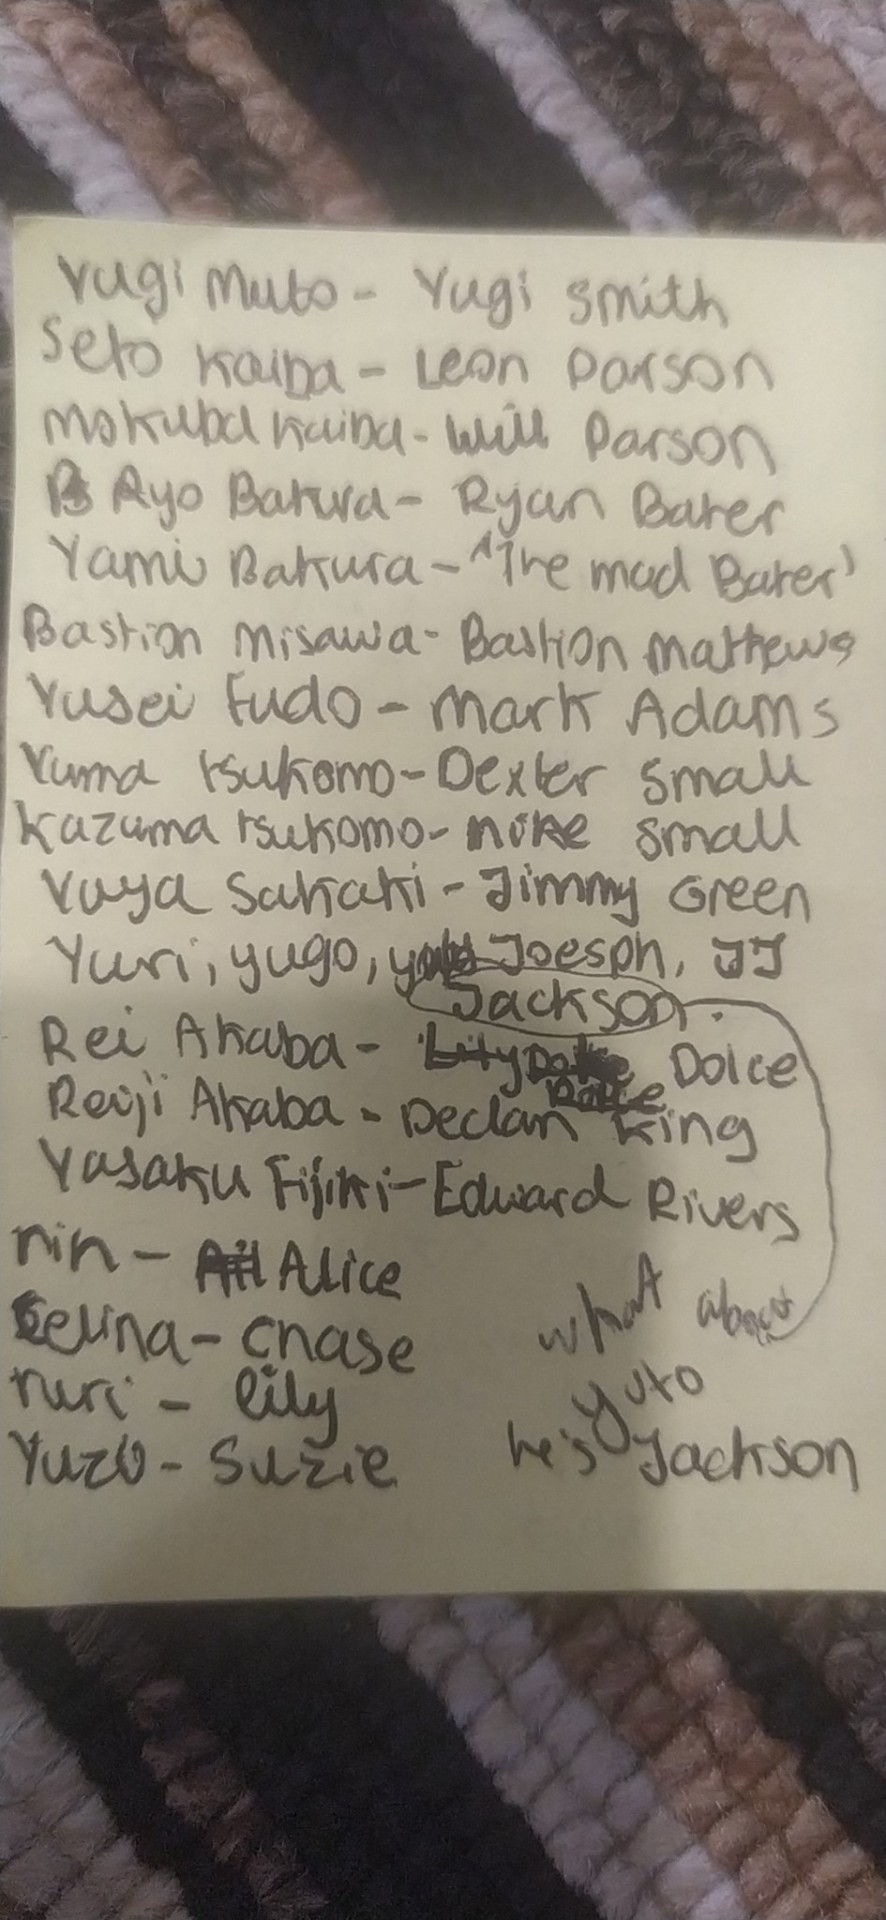 Yugi Muto - Yugi Smith
Seto Kaiba - Leon Parson
Mokuba Kaiba - Will Parson
Ryo Bakura - Ryan Baker
Yami Bakura - "The mad Baker"
Bastion Misawa - Bastion Matthews
Yusei Fudo - Mark Adams
Yuma tsukomo - Dexter Small
Kazuma tsukomo - Mike Small
Yuya Sakaki - Jimmy Green
Yuri, yugo, Joesph, JJ
Jackson.
Rei Akaba - Lily Dolce
Reiji Akaba - Declan King
Yasaku Fijiki - Edward Rivers
rin - Alice
Selina - Chase
ruri - lily
Yuzu - Suzie
what about
yuto
he's Jackson